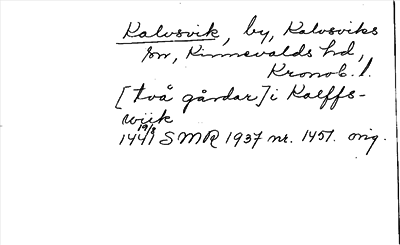 Kalvsvik, by, Kalvsviks
sn, Kinnevalds hd,
Kronob. l.
[två gårdar] i Kalffs-
wiik
1441 19/3 SMR 1937 nr. 1451. orig.